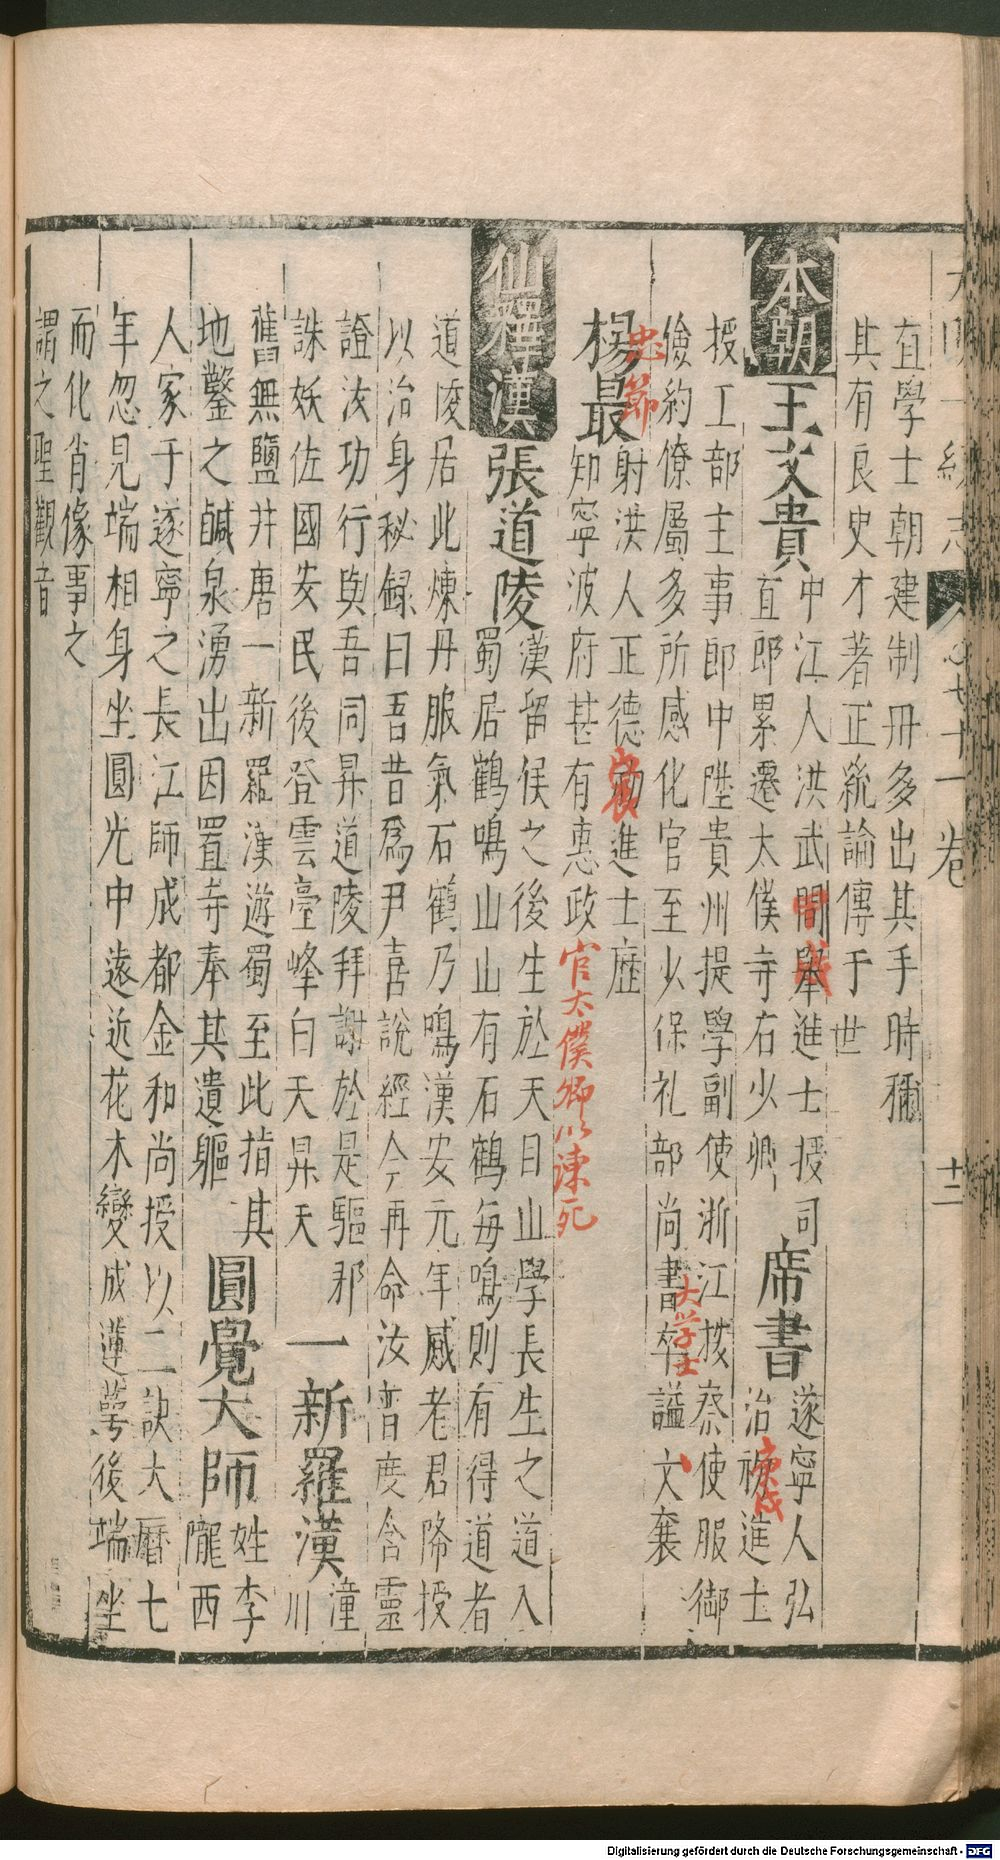 大明一統志 卷之七十一 卷 十二
直學士朝建制冊多出其手時稱
其有良史才著正統論傳于世
本朝
王文貴
中江人洪武間舉進士授司
直郎累遷太僕寺右少卿
席書
遂寧人弘
治初進士
授工部主事郎中陞貴州提學副使浙江按察使服御
儉約僚屬多所感化官至少保礼部尚書卒諡文襄
楊最
射洪人正德初進士歷
知寧波府甚有惠政
忠節
官太僕卿以諫死
大学士
仙釋
漢
張道陵
漢留侯之後生於天目山學長生之道入
蜀居鶴鳴山山有石鶴每鳴則有得道者
道陵居此煉丹服氣石鶴乃鳴漢安元年感老君降授
以治身秘録曰吾昔爲尹喜說經今再命汝普度含靈
證汝功行與吾同昇道陵拜謝於是驅邪
誅妖佐國安民後登雲臺峰白天昇天
一新羅漢
潼川
舊無鹽井唐一新羅漢遊蜀至此指其
地鑿之鹹泉湧出因置寺奉其遺軀
圓覺大師
姓李
隴西
人家于遂寧之長江師成都金和尚授以二訣大曆七
年忽見端相身坐圓光中遠近花木變成蓮萼後端坐
而化肖像事之
謂之聖觀音
Digitalisierung gefördert durch die Deutsche Forschungsgemeinschaft - DFG